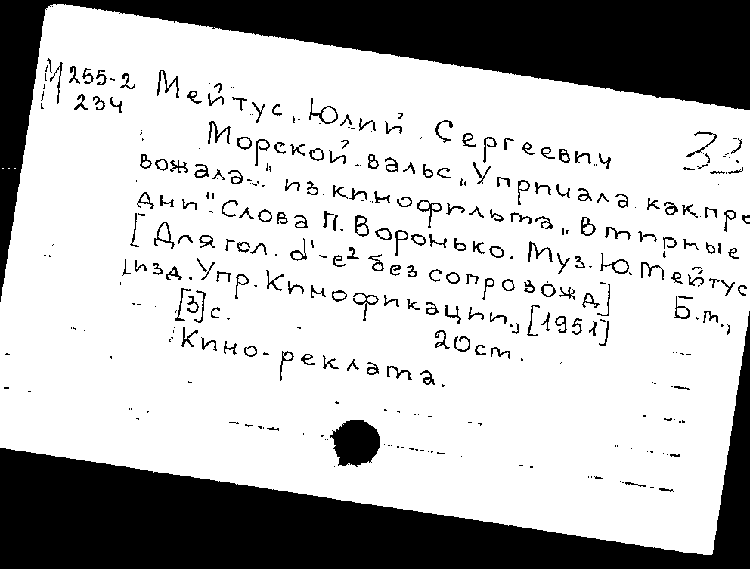 М 255-2
234
Мейтус, Юлий Сергеевич
33
Морской вальс „У причала как про
вожала..." из кинофильма „В мирные
дни". Слова П. Воронько. Муз. Ю. Мейтус
[Для гол. d'-e² без сопровожд] Б.м.,
изд. Упр. Кинофикации, [1951]
[3]с. 20см.
Кино-реклама.